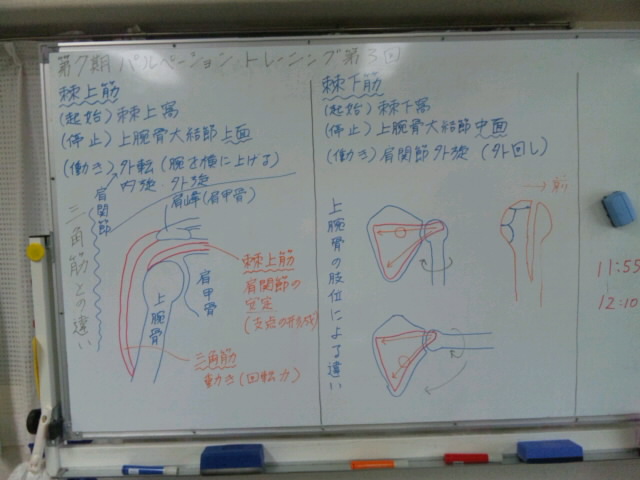 第7期 パルペーション トレーニング 第3回
棘上筋
(起始) 棘上窩
(停止) 上腕骨大結節上面
(働き) 外転 (腕を横に上げる)
内旋・外旋
肩関節
三角筋との違い
肩峰(肩甲骨)
上腕骨
肩甲骨
棘上筋
肩関節の
安定
(支点の形成)
三角筋
動き(回転力)
棘下筋
(起始) 棘下窩
(停止) 上腕骨大結節中面
(働き) 肩関節外旋 (外回し)
上腕骨の肢位による違い
前
11:55
12:10